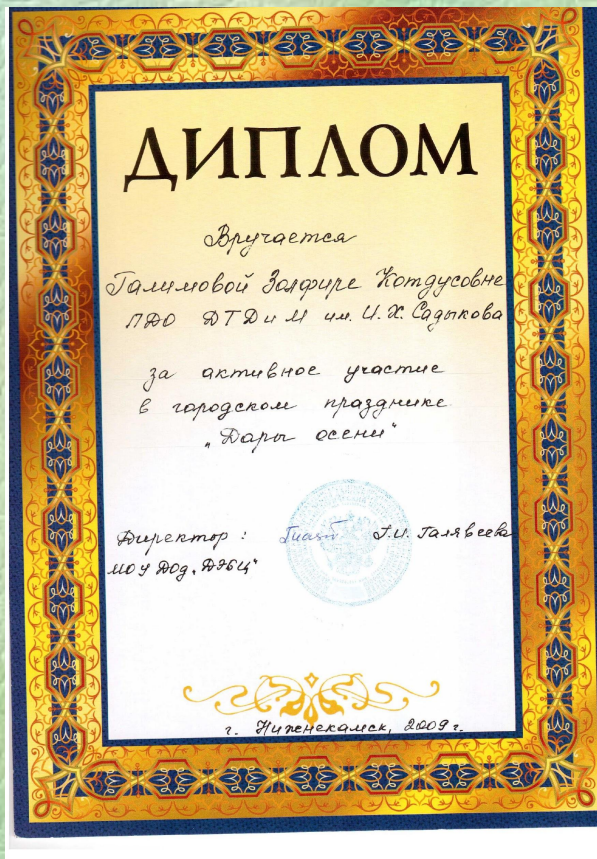 ДИПЛОМ
Вручается
Галимовой Золфире Котдусовне
ПДО ДТДиМ им. И.Х. Садыкова
за активное участие
в городском празднике
„Дары осени"
Директор : Г.И. Галявеева
МОУ ДОД „ДЭБЦ"
г. Нижнекамск, 2009 г.